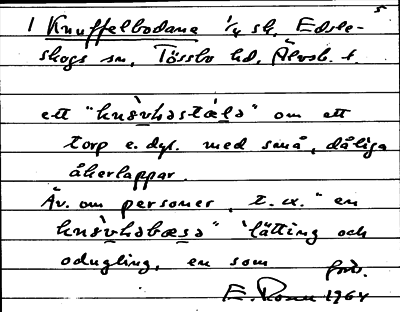 5
1 Knuffelbodana 1/4 sk, Edsle-
skogs sn, Tössbo hd, Älvsb. l.
ett "knùvhəstàlə" om ett
torp e. dyl. med små, dåliga
åkerlappar.
Äv. om personer, t.ex. "en
knùvhəbæsə" 'lätting och
odugling, en som
E. 1964